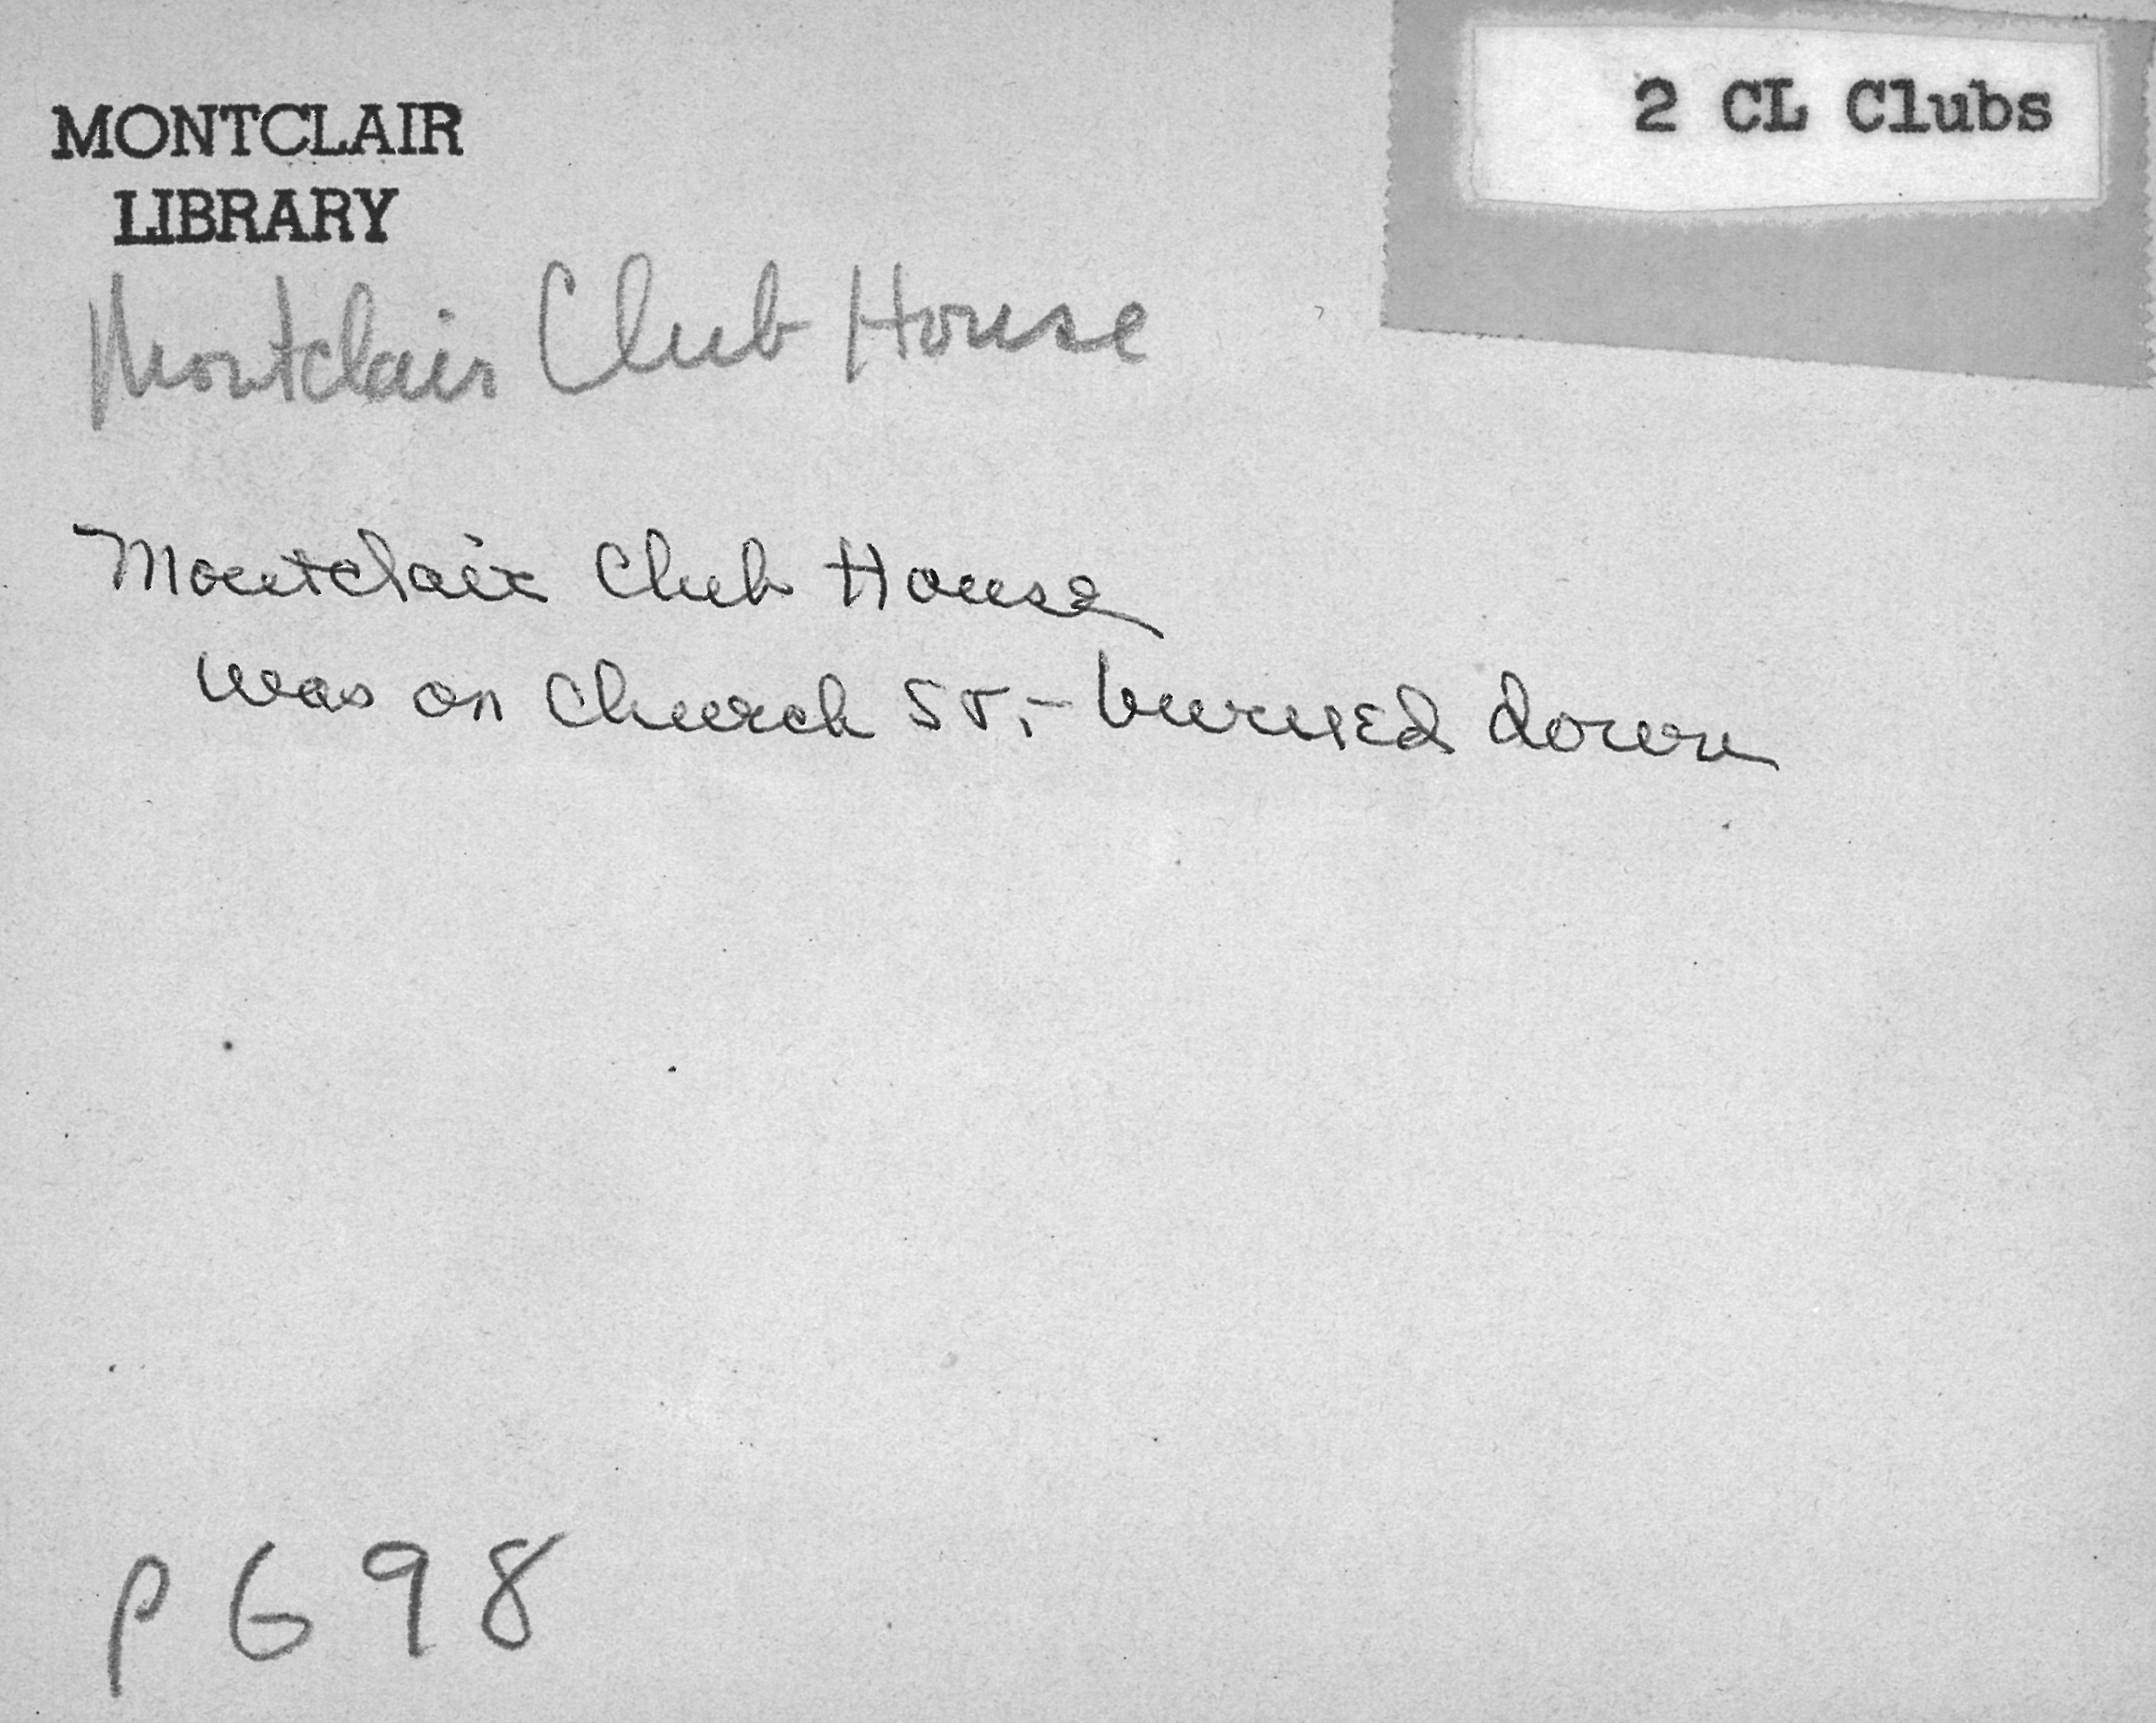 MONTCLAIR
LIBRARY
2 CL Clubs
Montclair Club House
Montclair Club House
was on Church St.- burned down
P698